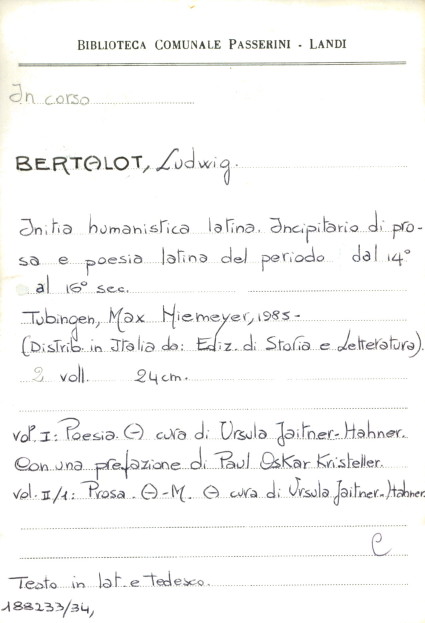 BIBLIOTECA COMUNALE PASSERINI - LANDI
In corso
BERTALOT, Ludwig.
Initia humanistica latina. Incipitario di pro-
sa e poesia latina del periodo dal 14°
al 16° sec.
Tubingen, Max Niemeyer, 1985-
(Distrib. in Italia da: Ediz. di Storia e Letteratura).
2 voll. 24 cm.
vol. I: Poesia. A cura di Ursula Jaitner-Hahner.
Con una prefazione di Paul Oskar Kristeller.
vol. II/1: Prosa. A-M. A cura di Ursula Jaitner-Hahner.
C
Testo in lat. e tedesco.
188233/34,